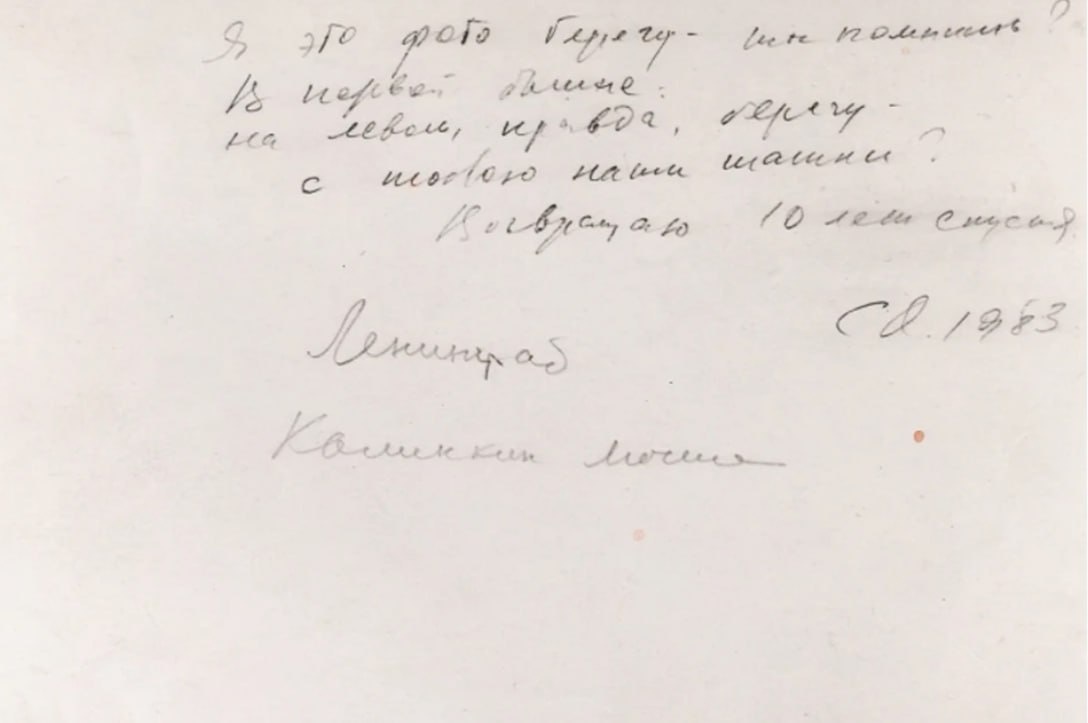 Я это фото берегу - ты помнишь?
В первой башне:
на левом, правда, берегу -
с тобою наши шашни?
Возвращаю 10 лет спустя
1983
Ленинград
Калинкин мост